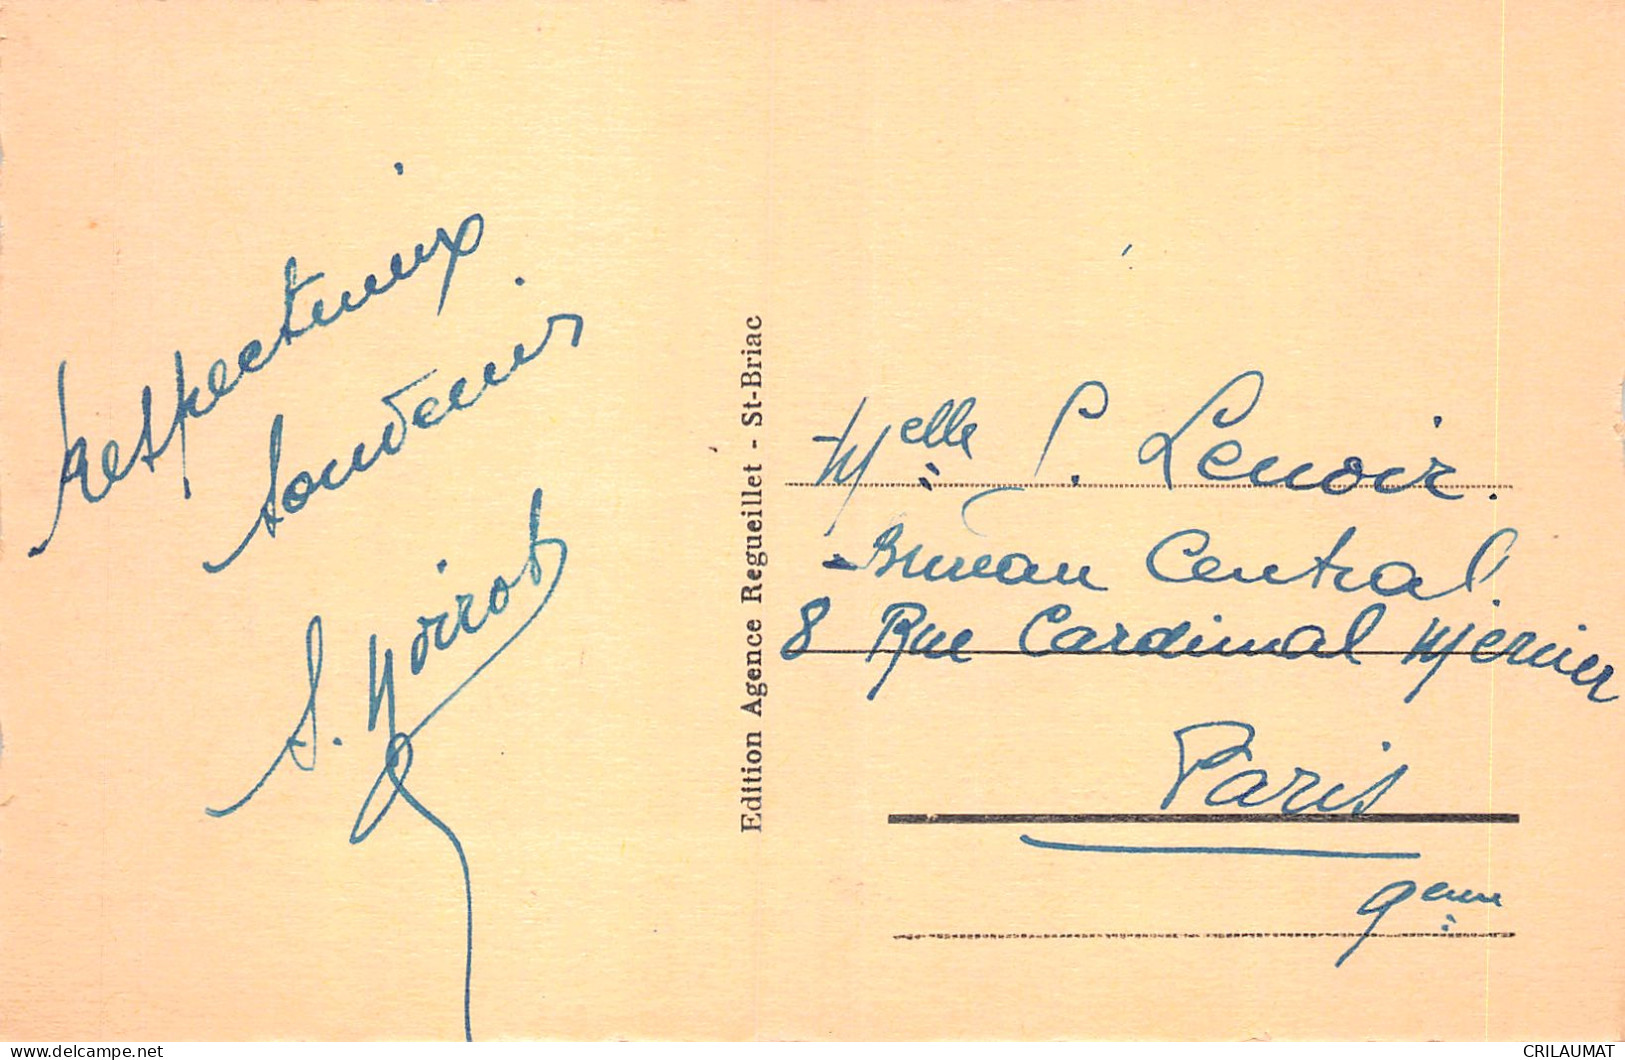 Respectueux
souvenir
S. Noirot
Edition Agence Regueillet - St-Briac
Melle S. Lenoir.
Bureau Central.
8 Rue Cardinal Mercier
Paris
9eme
CRILAUMAT